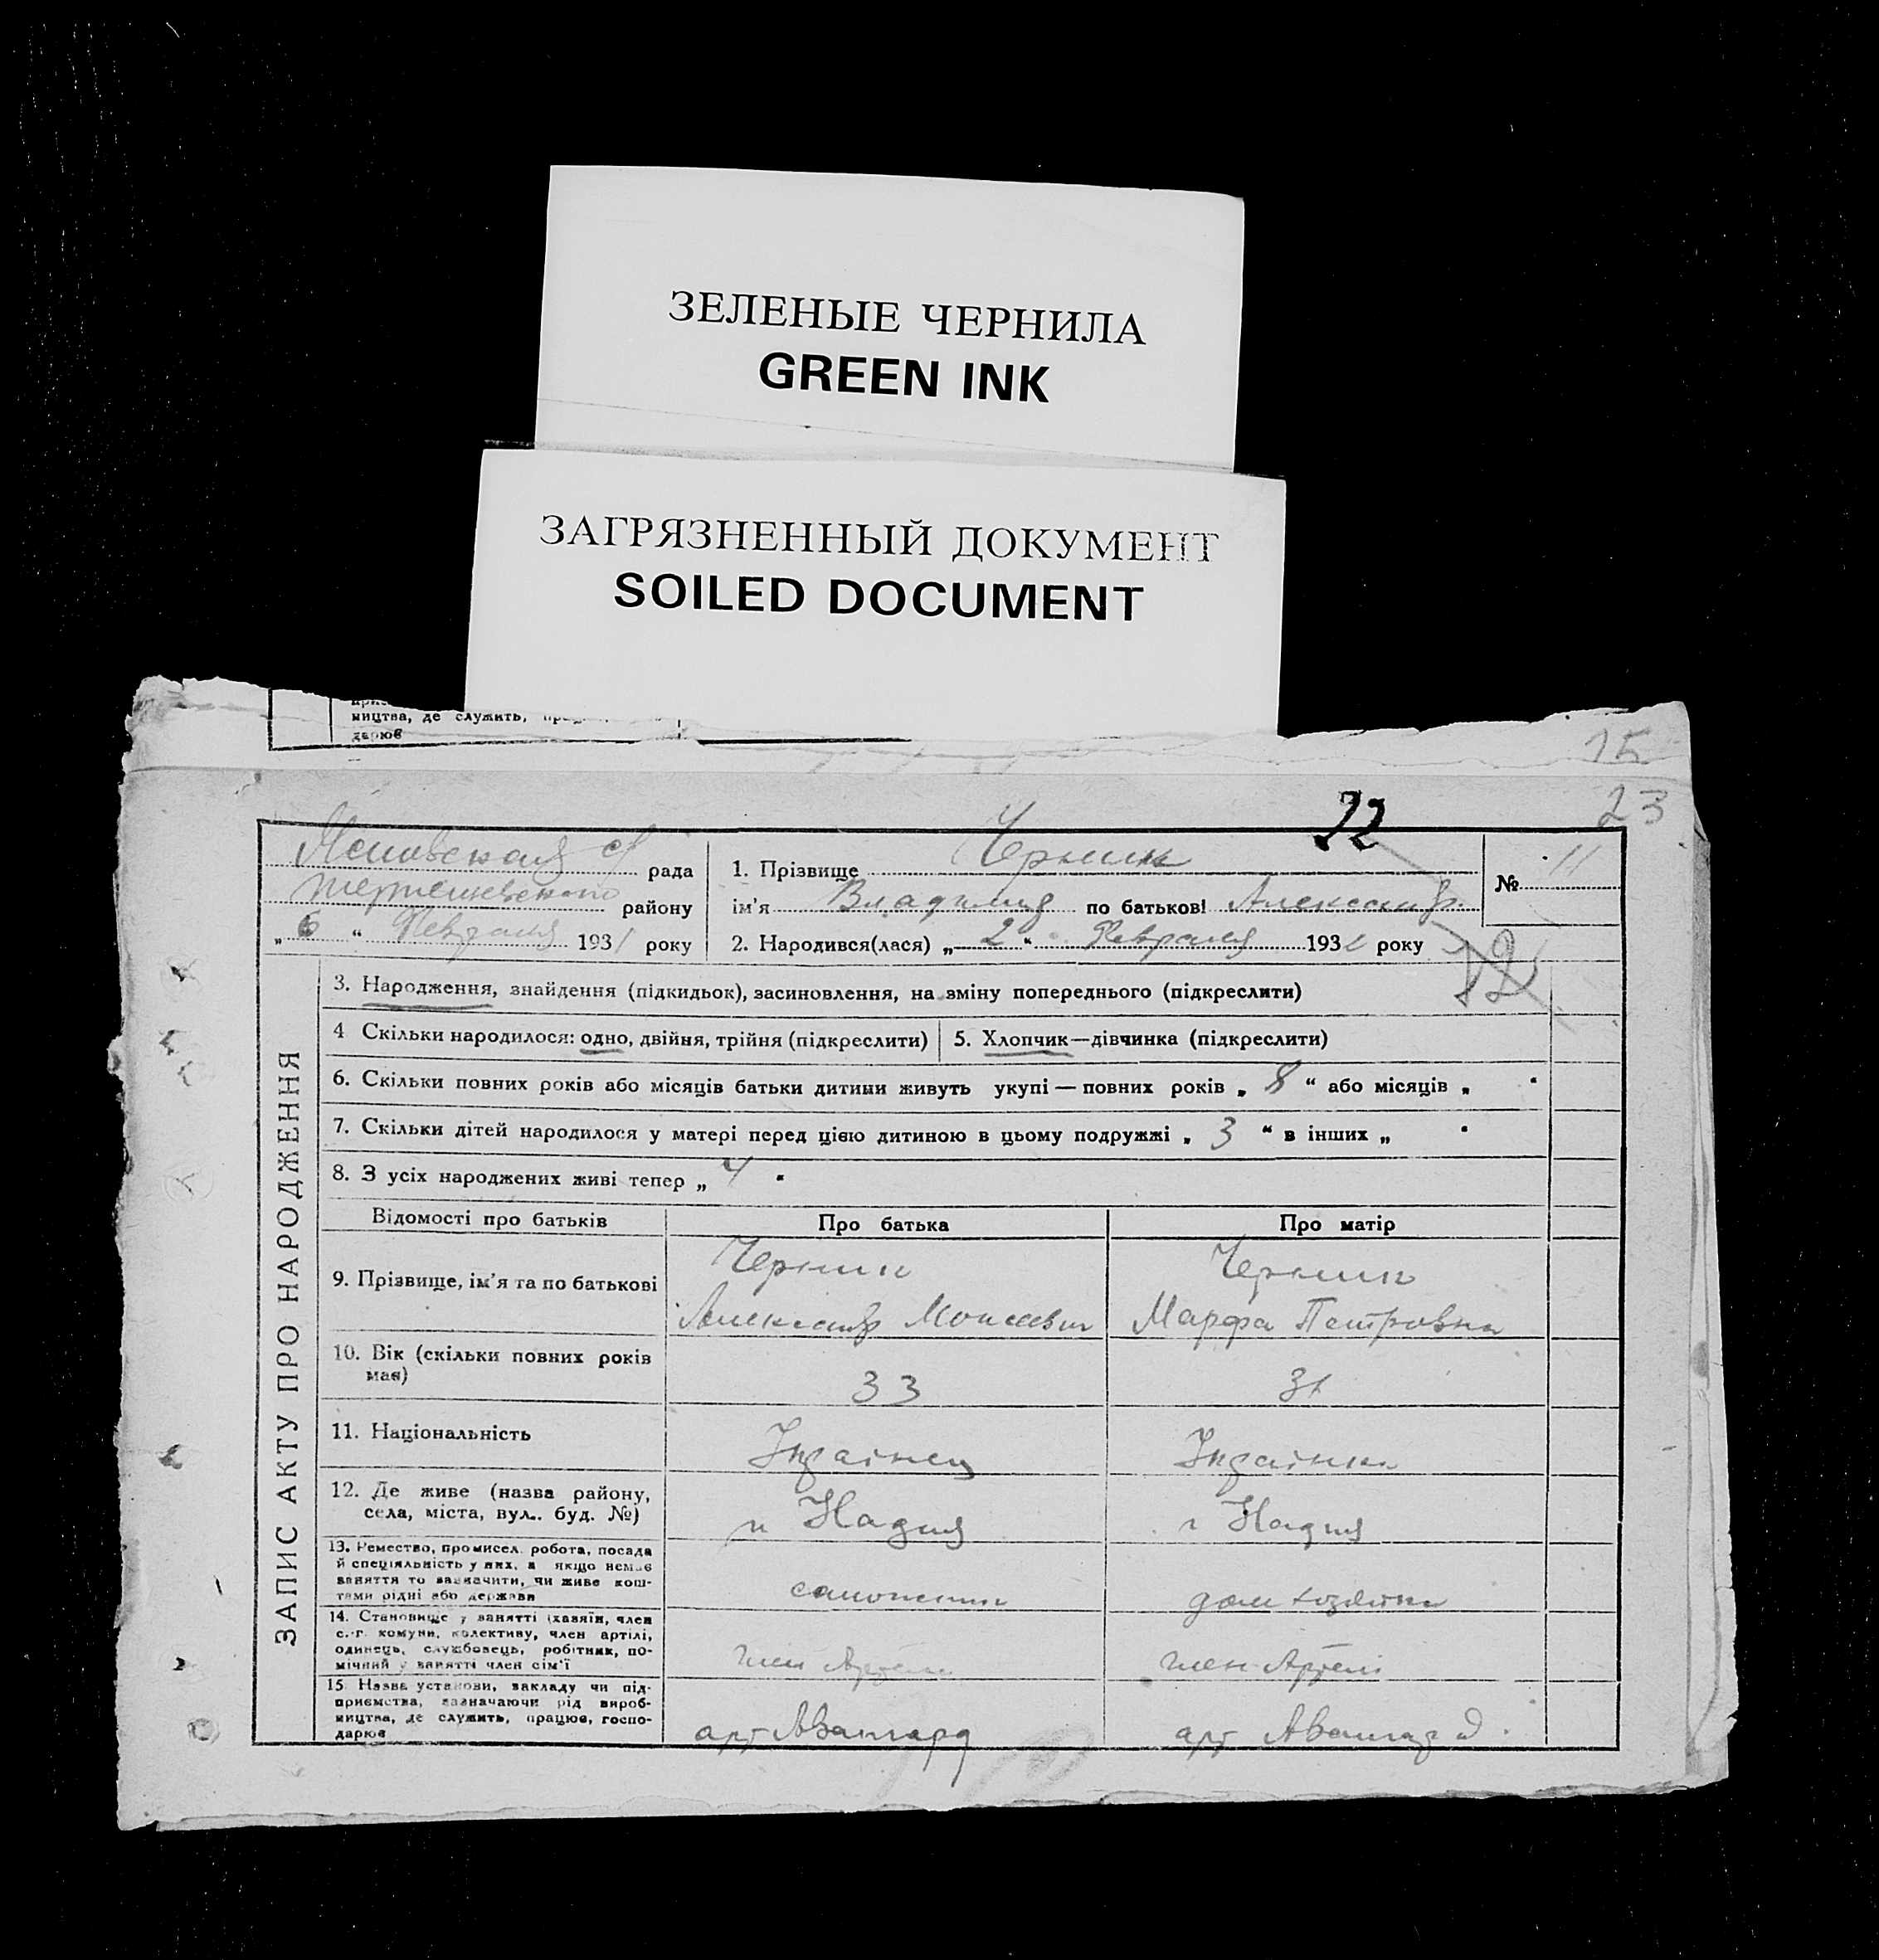 ЗЕЛЕНЫЕ ЧЕРНИЛА
GREEN INK
ЗАГРЯЗНЕННЫЙ ДОКУМЕНТ
SOILED DOCUMENT
ництва, де служить,
дарює
15
23
22
рада
району
„ 6 “ Февраля 1931 року
1. Прізвище Черник
ім'я Владимир по батькові Александр.
2. Народився(лася) „ 2 “ Февраля 193 року
№ 11
12
ЗАПИС АКТУ ПРО НАРОДЖЕННЯ
3. Народження, знайдення (підкидьок), засиновлення, на зміну попереднього (підкреслити)
4 Скільки народилося: одно, двійня, трійня (підкреслити)
5. Хлопчик—дівчинка (підкреслити)
6. Скільки повних років або місяців батьки дитини живуть укупі — повних років „ 8 “ або місяців „ “
7. Скільки дітей народилося у матері перед цією дитиною в цьому подружжі „ 3 “ в інших „ “
8. З усіх народжених живі тепер „ 4 “
Відомості про батьків
Про батька
Про матір
9. Прізвище, ім'я та по батькові
Черник
Александр Моисеевич
Черник
Марфа Петровна
10. Вік (скільки повних років
має)
33
31
11. Національність
Українец
Українка
12. Де живе (назва району,
села, міста, вул. буд. №)
Надия
Надия
13. Ремество, промисел, робота, посада
й спеціяльність у них, а якщо немає
заняття то зазначити, чи живе кош-
тами рідні або держави
дом хозяйка
14. Становище у занятті (хазяїн, член
с.-г. комуни, колективу, член артілі,
одинець, службовець, робітник, по-
мічний у занятті член сім'ї
член Артели
член Артелі
15. Назва установи, закладу чи під-
приємства, зазначаючи рід вироб-
ництва, де служить, працює, госпо-
дарює
арт Авангард
арт Авангард